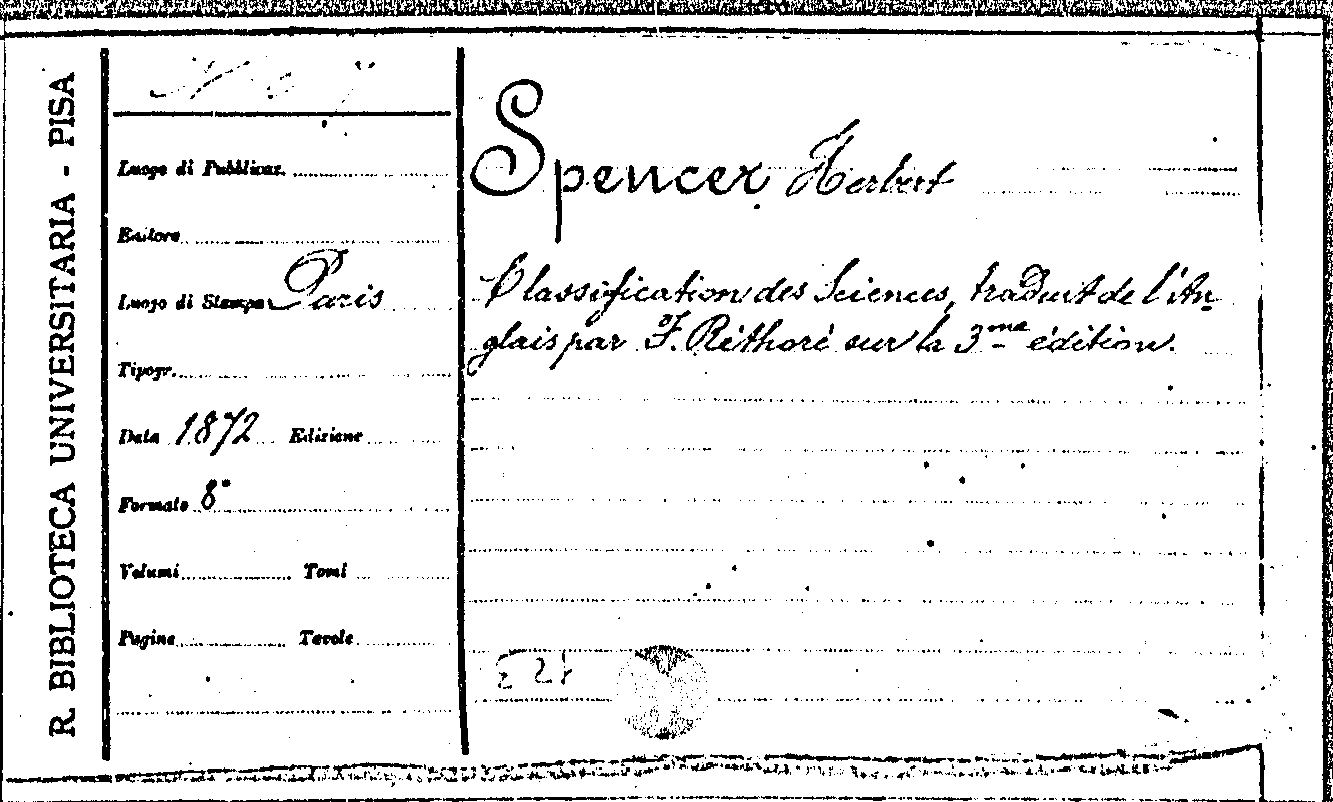 R. BIBLIOTECA UNIVERSITARIA - PISA
Luogo di Pubblicaz.
Editore
Luogo di Stampa Paris
Tipogr.
Data 1872 Edizione
Formato 8°
Volumi Tomi
Pagine Tavole
Spencer Herbert
Classification des Sciences, traduit de l'An-
glais par F. Réthoré sur la 3me édition.